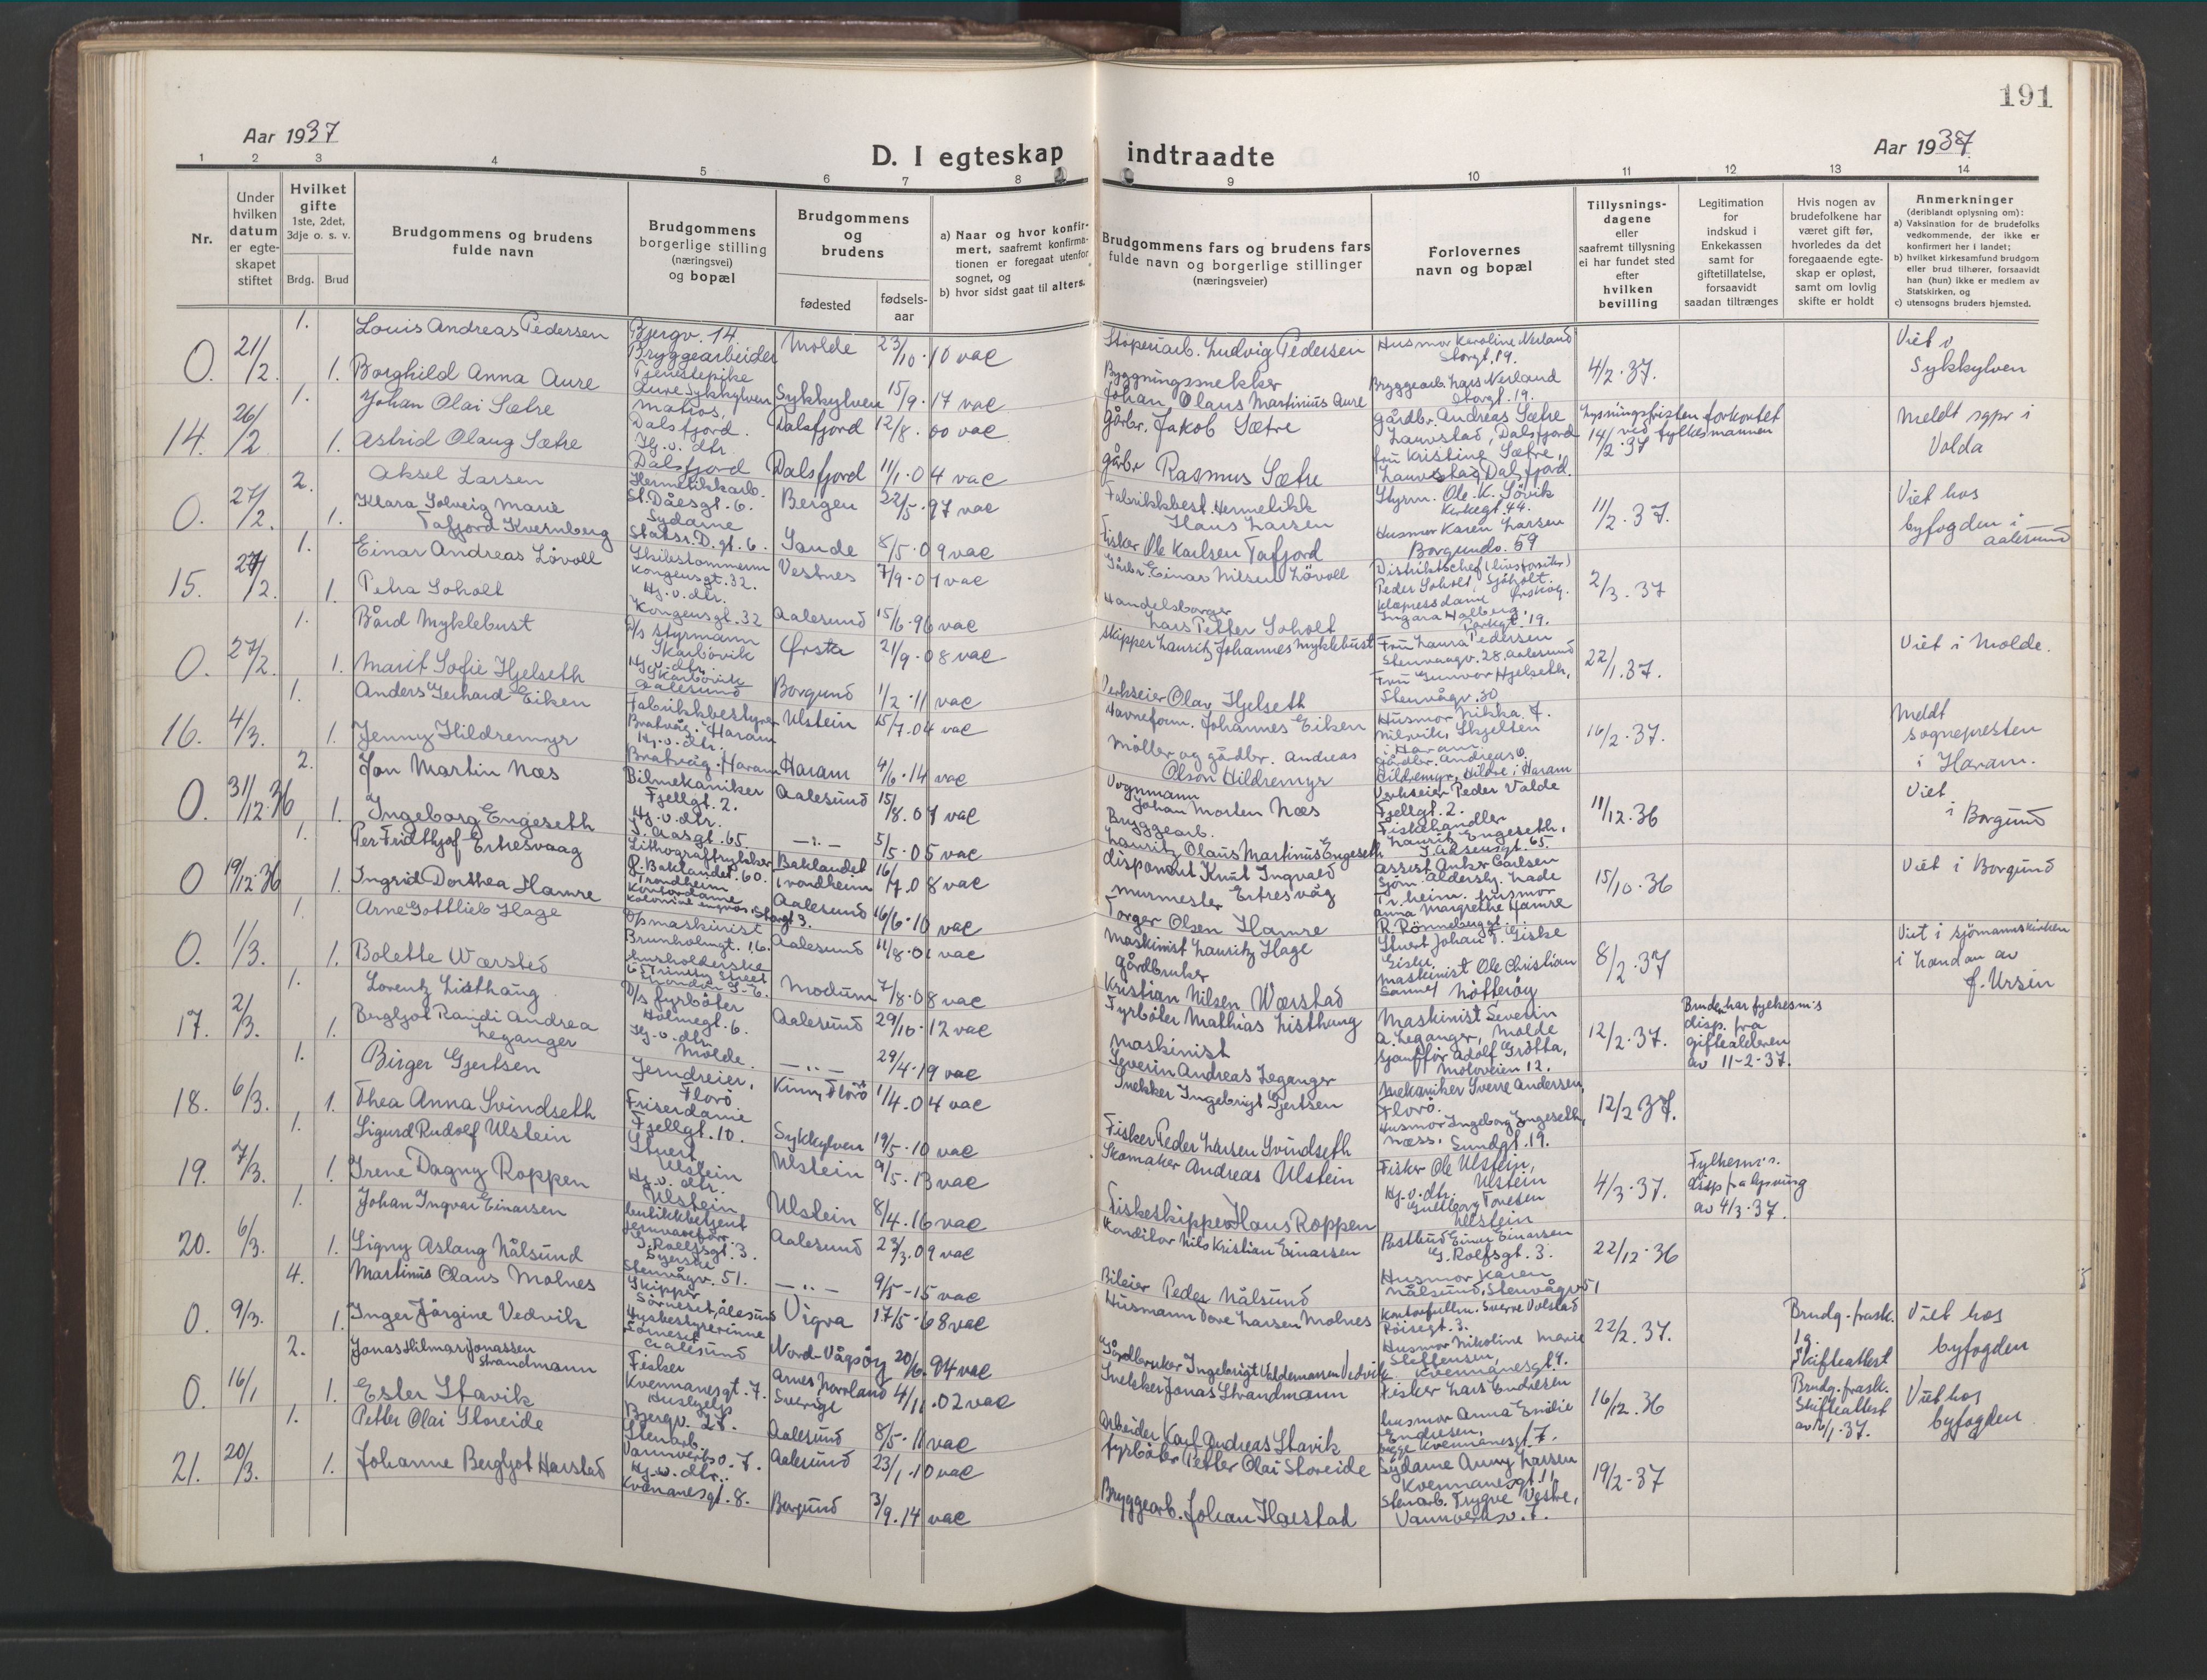 191
Aar 1937
D. I egteskap indtraadte
Aar 1937
1 2 3 4 5 6 7 8 9 10 11 12 13 14
Nr.
Under hvilken datum er egteskapet stiftet
Hvilket gifte 1ste, 2det, 3dje o. s. v.
Brdg. Brud
Brudgommens og brudens fulde navn
Brudgommens borgerlige stilling (næringsvei) og bopæl
Brudgommens og brudens
fødested
fødselsaar
a) Naar og hvor konfirmert, saafremt konfirmationen er foregaat utenfor sognet, og
b) hvor sidst gaat til alters.
Brudgommens fars og brudens fars fulde navn og borgerlige stillinger (næringsveier)
Forlovernes navn og bopæl
Tillysningsdagene eller saafremt tillysning ei har fundet sted efter hvilken bevilling
Legitimation for indskud i Enkekassen samt for giftetillatelse, forsaavidt saadan tiltrænges
Hvis nogen av brudefolkene har været gift før, hvorledes da det foregaaende egteskap er opløst, samt om lovlig skifte er holdt
Anmerkninger (deriblandt oplysning om):
a) Vaksination for de brudefolks vedkommende, der ikke er konfirmert her i landet;
b) hvilket kirkesamfund brudgom eller brud tilhører, forsaavidt han (hun) ikke er medlem av Statskirken, og
c) utensogns bruders hjemsted.
0. 21/2 1. Louis Andreas Pedersen Bjergv. 14. Bryggearbeider Molde 23/10.10 vac Støperiarb. Ludvig Pedersen Husmor Karoline Nerland Storgt. 19. 4/2.37. Viet i Sykkylven
1. Borghild Anna Aure Tjenestepike Aure Sykkylven Sykkylven 15/9.17 vac Bygningssnekker Johan Olaus Martinius Aure Bryggearb. Lars Nerland Storgt. 19.
14. 26/2 1. Johan Olai Sætre Matros, Dalsfjord. Dalsfjord 12/8.00 vac gårbr. Jakob Sætre gårdbr. Andreas Sætre Lauvstad, Dalsfjord Lysningsfristen forkortet ved fylkesmannen 14/2.37 Meldt sgpr i Volda
1. Astrid Olaug Sætre Hj.v. dtr. Dalsfjord Dalsfjord 11/1.04 vac gårbr Rasmus Sætre fru Kristine Sætre, Lauvstad, Dalsfjord.
0. 27/2. 2. Aksel Larsen Hermetikkarb. St. Olesgt. 6. Bergen 22/5.97 vac Fabrikkbest. Hermetikk Hans Larsen Styrm. Ole K. Søvik Kirkegt. 44. 11/2.37. Viet hos byfogden i Aalesund
1. Klara Solveig Marie Tafjord Kvernberg Sydame Statsr. D. gt. 6. Sande 8/5.09 vac Fisker Ole Karlsen Tafjord Husmor Karen Larsen Borgundv. 59
15. 27/2. 1. Einar Andreas Løvoll Kongensgt. 32. Vestnes 7/9.01 vac Gårbr. Einar Nilsen Løvoll Peder Soholt, Sjøholt. 2/3.37
1. Petra Soholt Hj.v. dtr. Kongensgt. 32 Aalesund 15/6.96 vac Handelsborger Lars Petter Soholt Ingara Parkgt. 19.
0. 27/2. 1. Bård Myklebust D/s styrmann Skarbøvik Ørsta 21/9.08 vac Skipper Lauritz Johannes Myklebust Fru Laura Pedersen Stenvaagv. 28, Aalesund 22/1.37. Viet i Molde.
1. Marit Sofie Hjelseth Hj.v. dtr. Skarbøvik Aalesund Borgund 1/2.11 vac Verkseier Olav Hjelseth Fru Gunvor Hjelseth, Stenvågv. 30
16. 4/3. 1. Anders Gerhard Eiken Fabrikkbestyrer Bratvåg i Haram Ulstein 15/7.04 vac Havneform. Johannes Eiken Husmor Rikka J. Nilsvik, Skjelten i Haram. 16/2.37. Meldt sognepresten i Haram.
1. Jenny Hildremyr Hj.v. dtr. Bratvåg. Haram Haram 4/6.14 vac Møller og gårdbr. Andreas Olson Hildremyr gårdbr. Andreas O. Hildremyr, Hildre i Haram
0. 31/12.36 2. Jon Martin Næs Bilmekaniker Fjellgt. 2. Aalesund 15/8.07 vac Vognmann Johan Morten Næs Verkseier Peder Valde Fjellgt. 2. 11/12.36 Viet i Borgund
1. Ingeborg Engeseth Hj.v. dtr. I. Aasgt. 65. — " — 5/5.05 vac Bryggearb. Lauritz Olaus Martinus Engeseth Fiskehandler Laurits Engeseth, I. Aasensgt. 65.
0 19/12.36 1. Per Fridthjof Ertresvaag Lithograftrykker Ø. Baklandet. 60. Trondheim Baklandet i Trondheim 16/7.08 vac disponent Knut Ingvald Ertresvåg assist. Anker Carlsen Sjøm. aldershj. Lade Tr.heim. 15/10.36 Viet i Borgund
1. Ingrid Dorthea Hamre Kontordame Storgt 3. Aalesund 16/6.10 vac murmester Torger Olsen Hamre husmor Anna Margrethe Hamre R. Rønnebergsgt.
0. 1/3. 1. Arne Gottlieb Hage D/s maskinist Brunholmgt. 16. Aalesund 11/8.01 vac Maskinist Lauritz Hage Stuert Johan P. Giske Giske, 8/2.37 Viet i Sjømannskirken i London av J. Ursin
1. Bolette Wærsted husholderske 6 Trinity Street London S.E. Modum 7/8.08 vac gårdbruker Kristian Nilsen Wærstad maskinist Ole Christian Sannes Nøtterøy
17. 2/3. 1. Lorentz Listhaug D/s fyrbøter Holmegt. 6. Aalesund 29/10.12 vac Fyrbøter Mathias Listhaug Maskinist Severin A. Leganger, Molde 12/2.37. Bruden har fylkesm's disp. fra giftealderen av 11-2-37.
1. Bergljot Randi Andrea Leganger Hj.v. dtr. Molde. — " — 29/4.19 vac maskinist Severin Andreas Leganger Sjauffør Adolf Grøtta, Moloveien 12.
18. 6/3. 1. Birger Gjertsen Jerndreier, Florø Kinn, Florø 1/4.04 vac Snekker Ingebrigt Gjertsen Mekaniker Sverre Andersen, Florø. 12/2 37.
1. Thea Anna Svindseth Friserdame Fjellgt. 10. Sykkylven 19/5.10 vac Fisker Peder Larsen Svindseth Husmor Ingeborg Engeseth, Næss, Sundgt. 19.
19. 7/3. 1. Sigurd Rudolf Ulstein Stuert Ulstein Ulstein 9/5.13 vac Skomaker Andreas Ulstein Fisker Ole Ulstein, Ulstein 4/3.37. Fylkesm's disp fra lysning av 4/3.37.
1. Irene Dagny Roppen Hj.v. dtr. Ulstein Ulstein 8/4.16 vac Fiskeskipper Hans Roppen Hj.v. dtr. Gullborg Tonesen Ulstein
20. 6/3. 1. Johan Ingvar Einarsen butikkbetjent jernvareforr. G. Rolfsgt. 3. Aalesund 23/3.09 vac Konditor Nils Kristian Einarsen Postbud Einar Einarsen G. Rolfsgt. 3. 22/12.36
1. Signy Aslaug Nålsund Syerske Stenvågv. 51. — " — 9/5-15 vac Bileier Peder Nålsund Husmor Karen Nålsund, Stenvågv 51
0. 9/3. 4. Martinus Olaus Molnes Skipper Sørneset, Ålesund Vigra 17/5.68 vac Husmann Dove Larsen Molnes Kontorfullm. Sverre Volstad Røisegt. 3. 22/2.37. Brudg. frask. lg. Skifteattest Viet hos byfogden
1. Inger Jørgine Vedvik Husbestyrerinne Sørneset Aalesund Nord-Vågsøy 20/6.94 vac Gårdbruker Ingebrigt Valdemarsen Vedvik Husmor Nikoline Marie Steffensen, Kvennanesgt 9.
0. 16/1 2. Jonas Hilmar Jonassen Strandmann Fisker Kvennanesgt. 7. Sverige 4/11.02 vac Snekker Jonas Strandmann Fisker Lars Endresen 16/12.36 Brudg. frask. Skifteattest av 14/1.37. Viet hos byfogden
1. Ester Stavik Hushjelp Bjergv. 27. Aalesund 8/5.11 vac Arbeider Karl Andreas Stavik husmor Anna Emilie Endresen, begge Kvennanesgt 7.
21. 20/3. 1. Petter Olai Storeide Stenarb. Vannverksv. 7. Aalesund 23/1.10 vac fyrbøter Petter Olai Storeide Sydame Anny Larsen Kvennanesgt 11 19/2-37
1. Johanne Bergljot Harstad Hj.v. dtr. Kvennanesgt. 8. Borgund 3/9.14 vac Bryggearb. Johan Harstad Stenarb. Trygve Vestre, Vannverksv. 7.